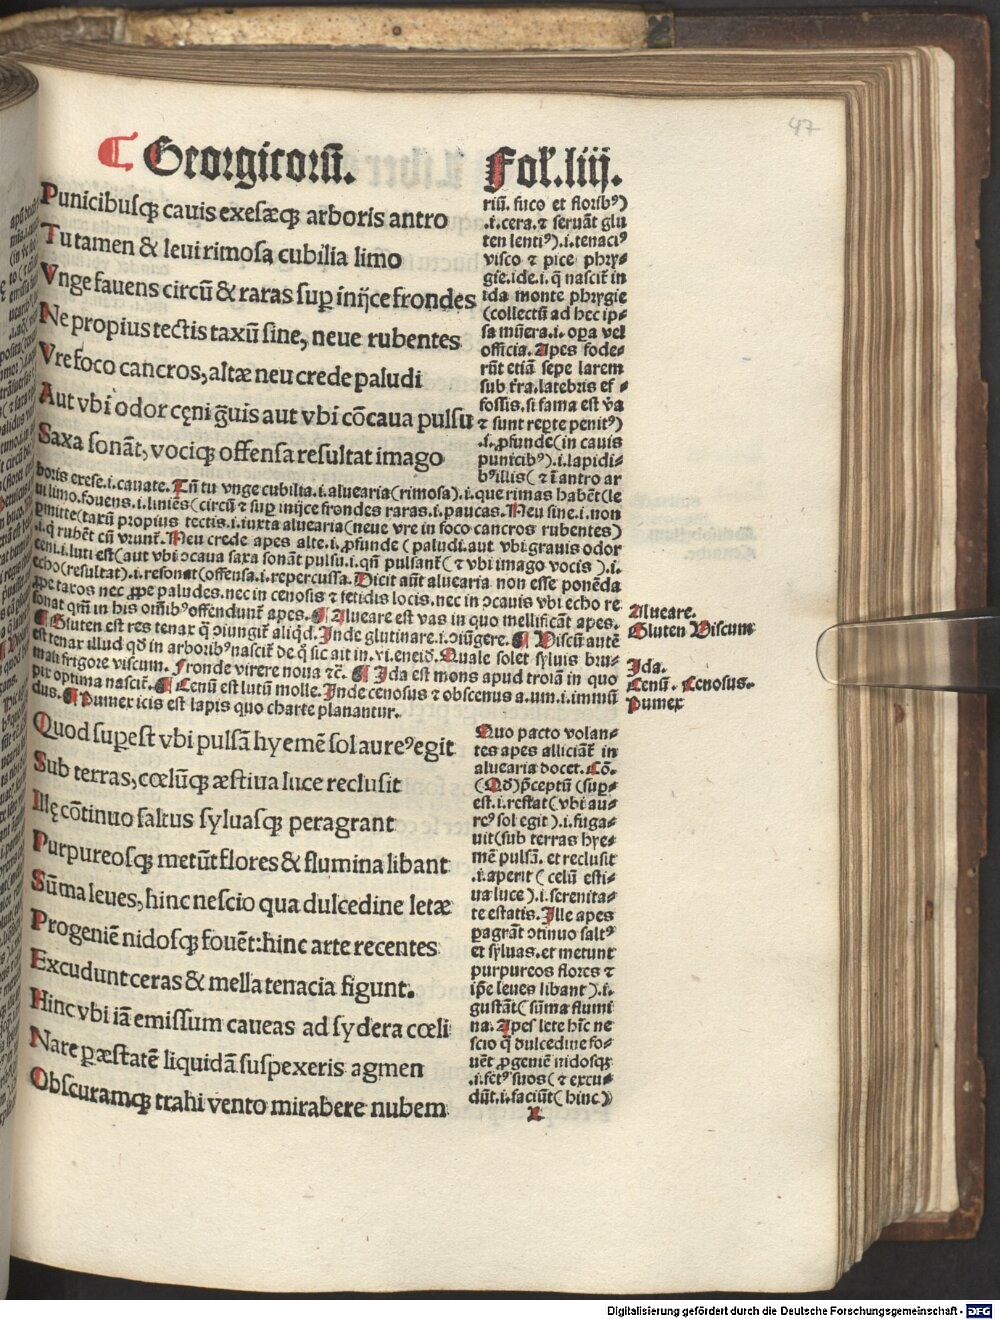 47
⸿ Georgicorū.
Fol.liij.
Punicibusqꝫ cauis exesæqꝫ arboris antro
Tu tamen & leui rimosa cubilia limo
Vnge fauens circū & raras sup inijce frondes
Ne propius tectis taxū sine, neue rubentes
Vre foco cancros, altæ neu crede paludi
Aut vbi odor cęni g̃uis aut vbi cōcaua pulsu
Saxa sonāt, vociqꝫ offensa resultat imago
riū. fuco et floribꝰ)
.i.cera.⁊ seruāt glu
ten lentiꝰ).i.tenaciꝰ
visco ⁊ pice phry⸗
gie.ide.i. q̄ nascit̄ in
ida monte phrygie
(collectū ad hec ip⸗
sa mūera.i. oꝑa vel
officia. Apes fode⸗
rūt etiā sepe larem
sub t̄ra.latebris ef⸗
fossis.si fama est v̄a
⁊ sunt reꝑte penitꝰ)
.i.ꝓfunde(in cauis
punicibꝰ).i.lapidi⸗
bꝰillis(⁊ ī antro ar
boris exese.i.cauate. Tn̄ tu vnge cubilia.i.aluearia(rimosa).i.que rimas habēt(le
ui limo.fouens.i.liniēs(circū ⁊ sup inijce frondes raras.i.paucas. Neu sine.i.non
ꝑmitte(taxū propius tectis.i.iuxta aluearia(neue vre in foco cancros rubentes)
.i.q rubēt cū vrunt̄. Neu crede apes alte.i.ꝓfunde(paludi.aut vbi grauis odor
ceni.i.luti est(aut vbi ↄcaua saxa sonāt pulsu.i.qn̄ pulsant̄(⁊ vbi imago vocis).i.
echo(resultat).i.resonat(offensa.i.repercussa. Dicit aūt aluearia non esse ponēda
ꝓpe taxos nec ꝓpe paludes.nec in cenosis ⁊ fetidis locis.nec in ↄcauis vbi echo re
sonat qm̄ in his om̄ibꝰ offendunt̄ apes. ¶ Alueare est vas in quo mellificāt apes.
¶ Gluten est res tenax q̄ ↄiungit̄ aliqd. Inde glutinare.i.ↄiūgere. ¶ Viscū autē
est tenax illud qd̄ in arboribꝰ nascit̄ de q̄ sic ait in.vi.eneid. Quale solet syluis bru⸗
mali frigore viscum. Fronde virere noua ⁊c̄. ¶ Ida est mons apud troiā in quo
pix optima nascit̄. ¶ Cenū est lutū molle. Inde cenosus ⁊ obscenus a.um.i.immū
dus. ¶ Pumex icis est lapis quo charte planantur.
Alueare.
Gluten Viscum
Ida.
Cenū. Cenosus.
Pumex
Quod supest vbi pulsā hyemē sol aureꝰ egit
Sub terras, cœlūqꝫ æstiua luce reclusit
Illę cōtinuo saltus syluasqꝫ peragrant
Purpureosqꝫ metūt flores & flumina libant
Sūma leues, hinc nescio qua dulcedine letæ
Progeniē nidosqꝫ fouēt: hinc arte recentes
Excudunt ceras & mella tenacia figunt.
Hinc vbi iā emissum caueas ad sydera cœli
Nare ꝑ æstatē liquidā suspexeris agmen
Obscuramqꝫ trahi vento mirabere nubem
Quo pacto volan⸗
tes apes alliciāt̄ in
aluearia docet. Cō.
(Qd)p̄ceptū (sup⸗
est.i.restat(vbi au⸗
reꝰ sol egit).i.fuga⸗
uit(sub terras hye⸗
mē pulsā.et reclusit
.i.aperit(celū esti⸗
ua luce).i.serenita⸗
te estatis. Ille apes
pagrāt ↄtinuo saltꝰ
et syluas.et metunt
purpureos flores ⁊
ip̄e leues libant).i.
gustāt(sūma flumi
na. Apes lete hīc ne
scio q̄ dulcedine fo⸗
uēt ꝓgeniē nidosqꝫ
.i.fetꝰ suos(⁊ excu⸗
dūt.i.faciūt(hinc)
Digitalisierung gefördert durch die Deutsche Forschungsgemeinschaft - DFG